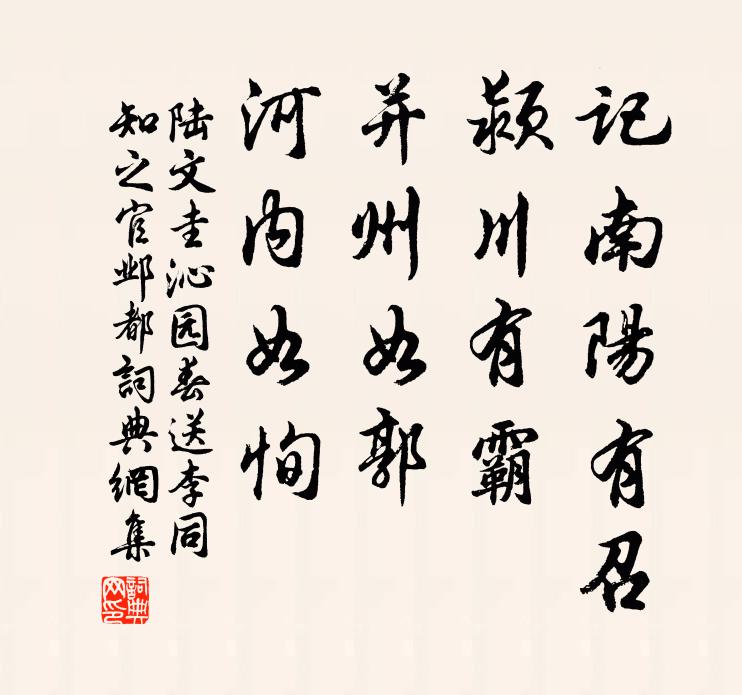 记南陽有召
颍川有霸
并州如郭
河内如恂
陆文圭沁园春送李同
知之官邺都詞典網集